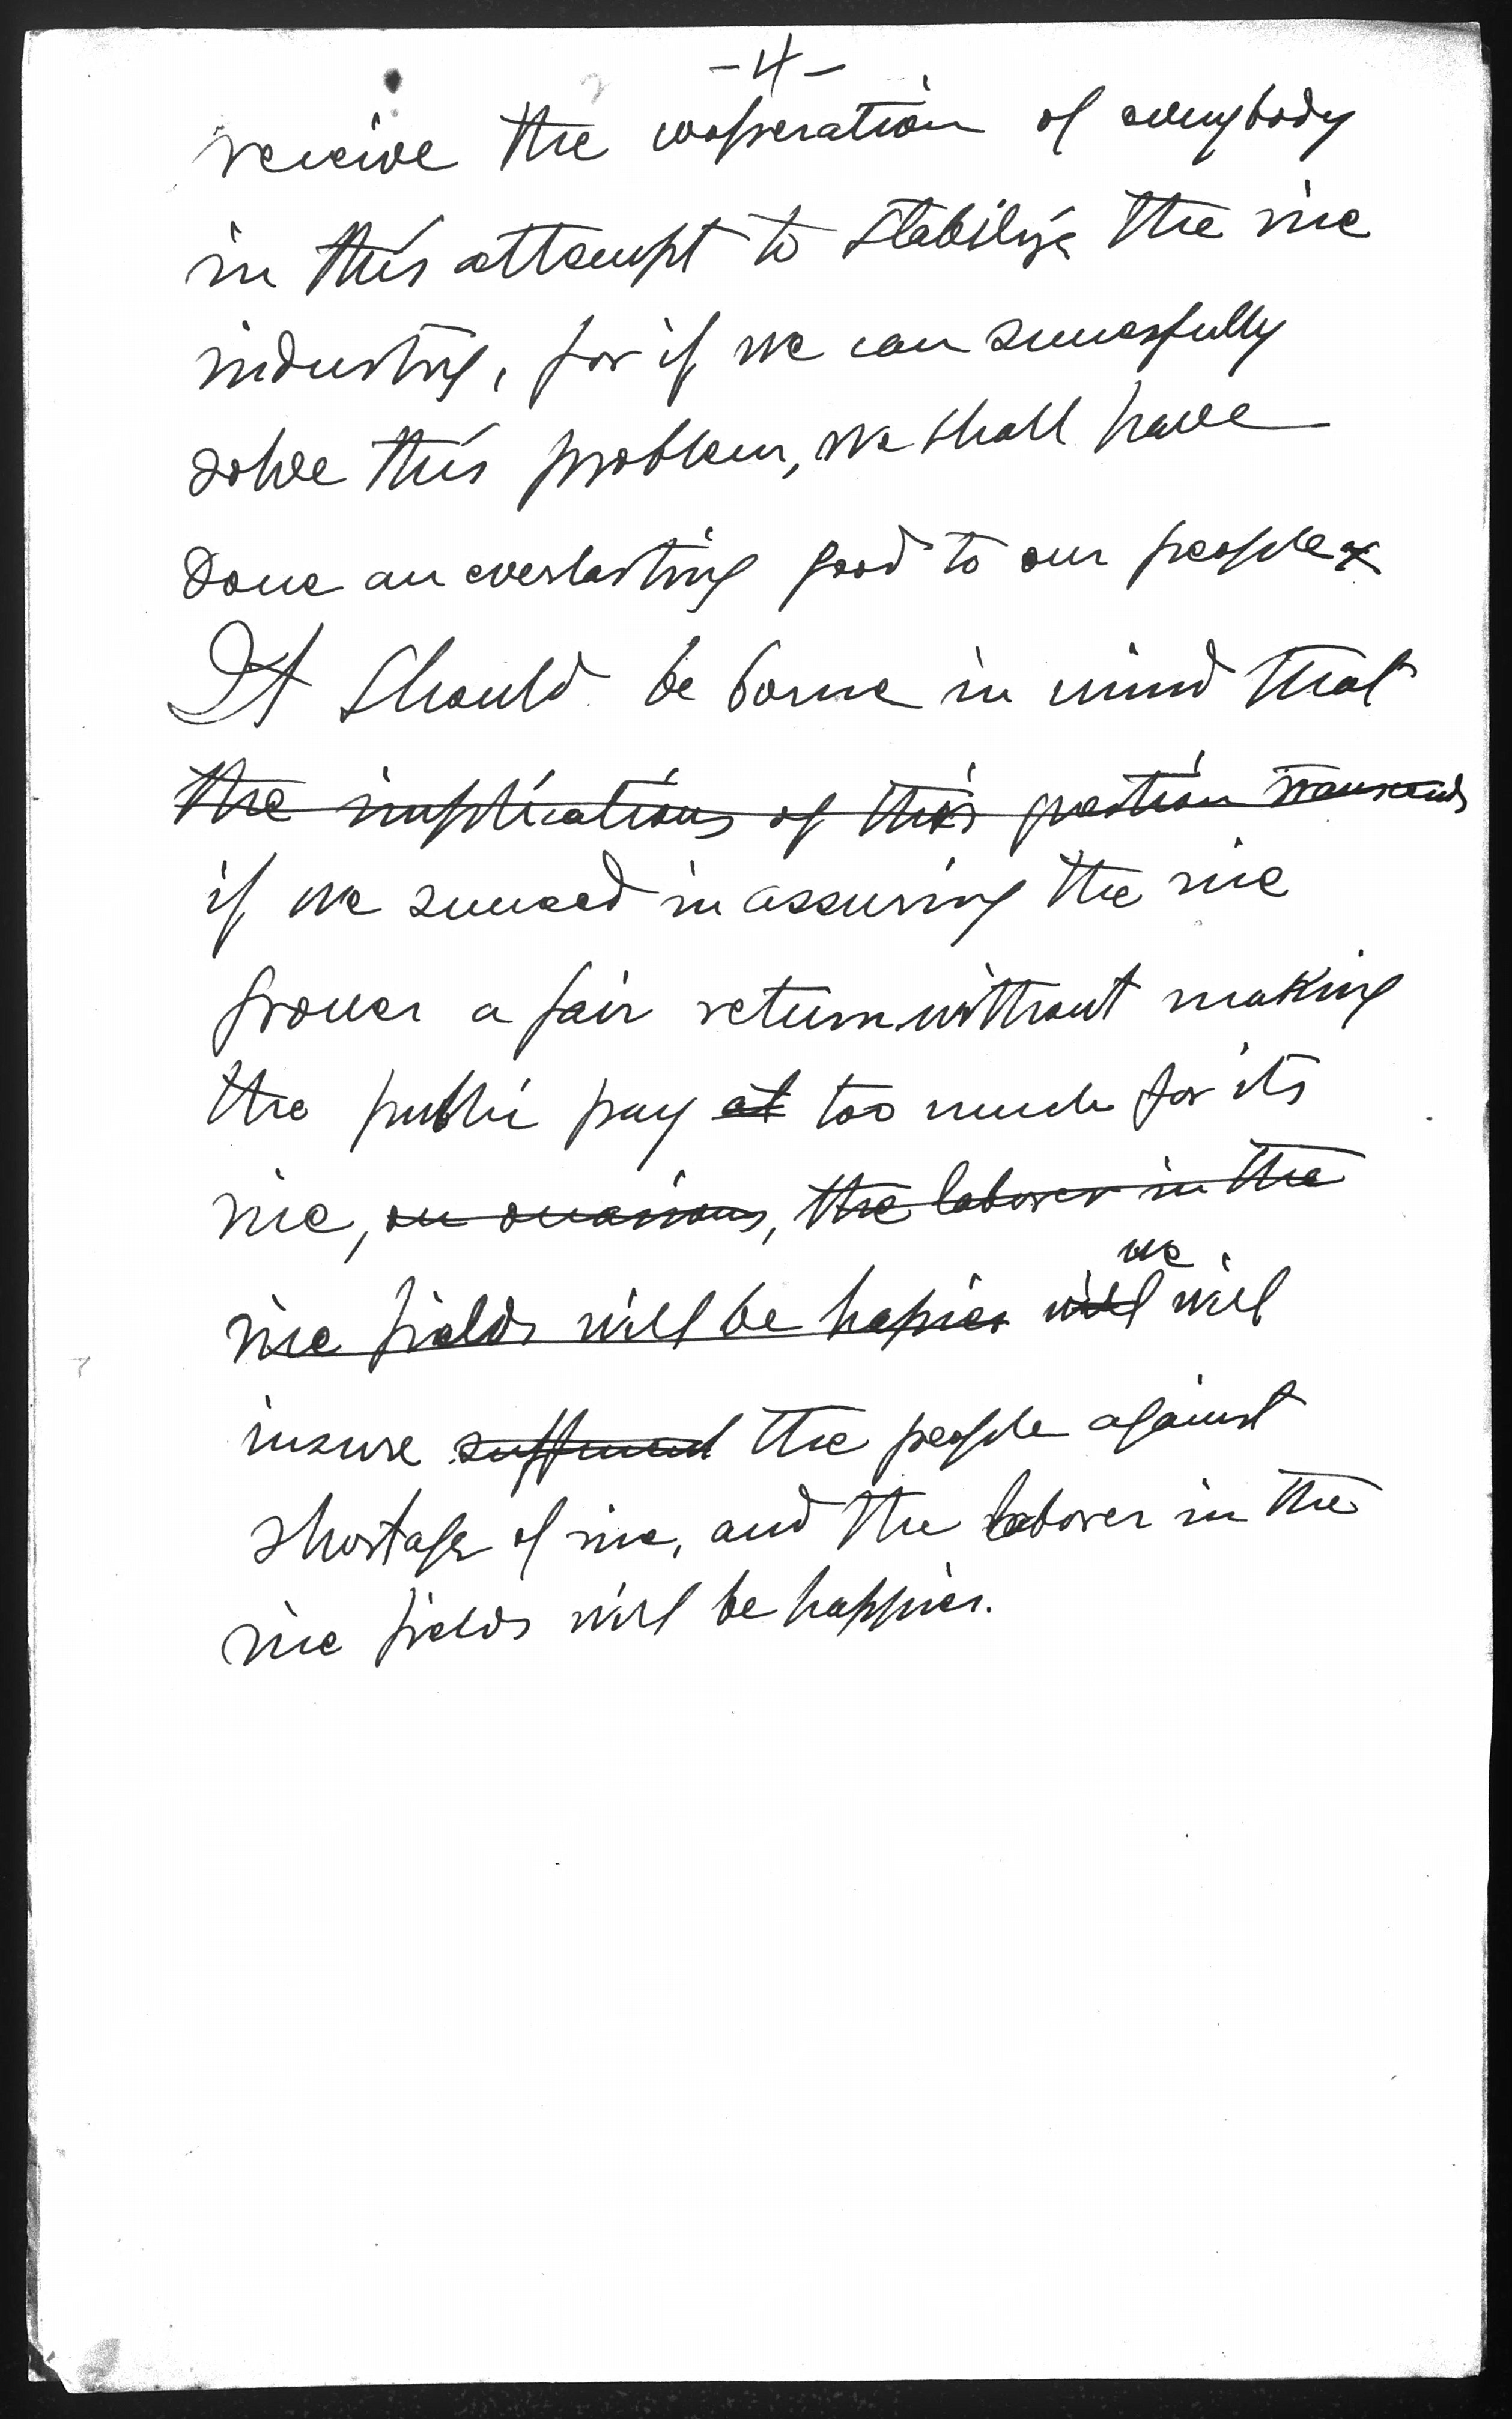 -4-
receive the cooperation of everybody
in this attempt to stabilize the rice
industry, for if we can successfully
solve this problem, we shall have
done an everlasting good to our people.
It should be borne in mind that
the implications of this question transcends
if we succeed in assuring the rice
grower a fair return without making
the public pay at too much for its
rice, on occasions, the laborer in the
we
rice fields will be hapier will will
insure sufficient the people against
shortage of rice, and the laborer in the
rice fields will be happier.